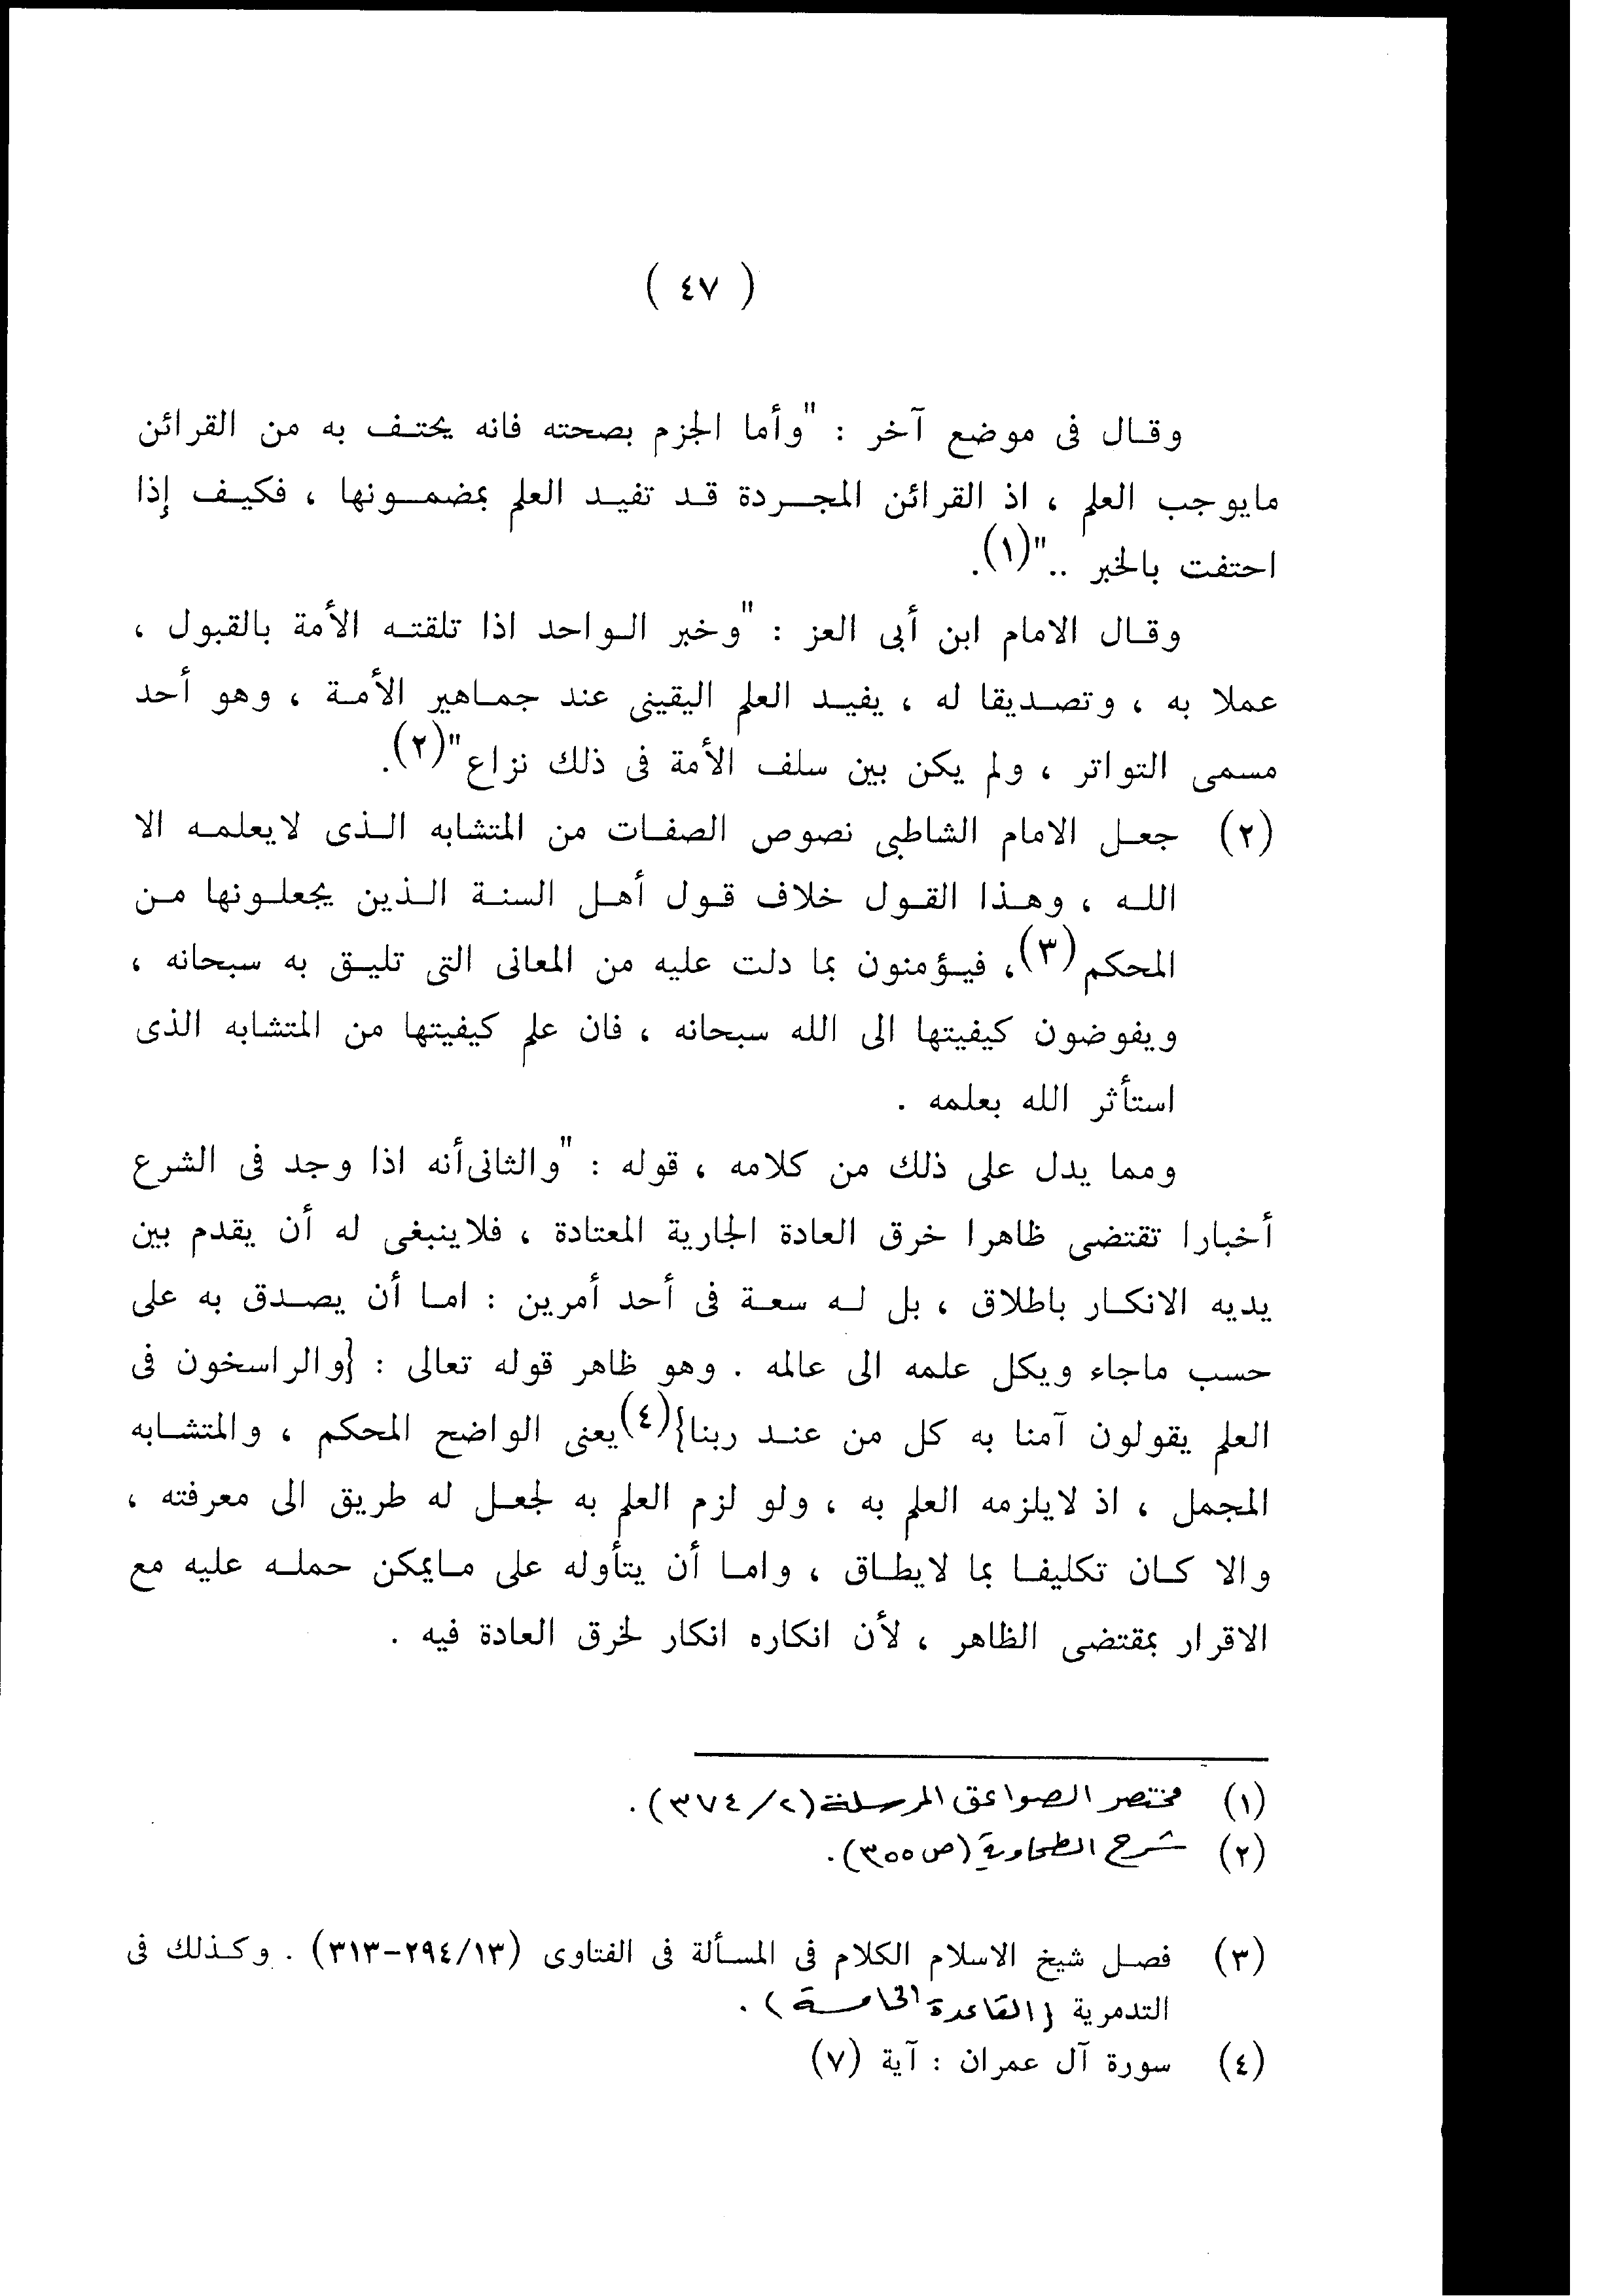 ( ٤٧ )
وقال فى موضع آخر : "وأما الجزم بصحته فانه يحتف به من القرائن
مايوجب العلم ، اذ القرائن المجردة قد تفيد العلم بمضمونها ، فكيف إذا
احتفت بالخبر .."(١).
وقال الامام ابن أبى العز : "وخبر الواحد اذا تلقته الأمة بالقبول ،
عملا به ، وتصديقا له ، يفيد العلم اليقينى عند جماهير الأمة ، وهو أحد
مسمى التواتر ، ولم يكن بين سلف الأمة فى ذلك نزاع"(٢).
(٢) جعل الامام الشاطبى نصوص الصفات من المتشابه الذى لايعلمه الا
الله ، وهذا القول خلاف قول أهل السنة الذين يجعلونها من
المحكم(٣)، فيؤمنون بما دلت عليه من المعانى التى تليق به سبحانه ،
ويفوضون كيفيتها الى الله سبحانه ، فان علم كيفيتها من المتشابه الذى
استأثر الله بعلمه .
ومما يدل على ذلك من كلامه ، قوله : "والثانى أنه اذا وجد فى الشرع
أخبارا تقتضى ظاهرا خرق العادة الجارية المعتادة ، فلاينبغى له أن يقدم بين
يديه الانكار باطلاق ، بل له سعة فى أحد أمرين : اما أن يصدق به على
حسب ماجاء ويكل علمه الى عالمه . وهو ظاهر قوله تعالى : {والراسخون فى
العلم يقولون آمنا به كل من عند ربنا}(٤)يعنى الواضح المحكم ، والمتشابه
المجمل ، اذ لايلزمه العلم به ، ولو لزم العلم به لجعل له طريق الى معرفته ،
والا كان تكليفا بما لايطاق ، واما أن يتأوله على مايمكن حمله عليه مع
الاقرار بمقتضى الظاهر ، لأن انكاره انكار لخرق العادة فيه .
(١) مختصر الصواعق المرسلة (٢/٣٧٤).
(٢) شرح الطحاوية (ص ٣٥٥).
(٣) فصل شيخ الاسلام الكلام فى المسألة فى الفتاوى (٢٩٤/١٣-٣١٣) . وكذلك فى
التدمرية (القاعدة الخامسة) .
(٤) سورة آل عمران : آية (٧)